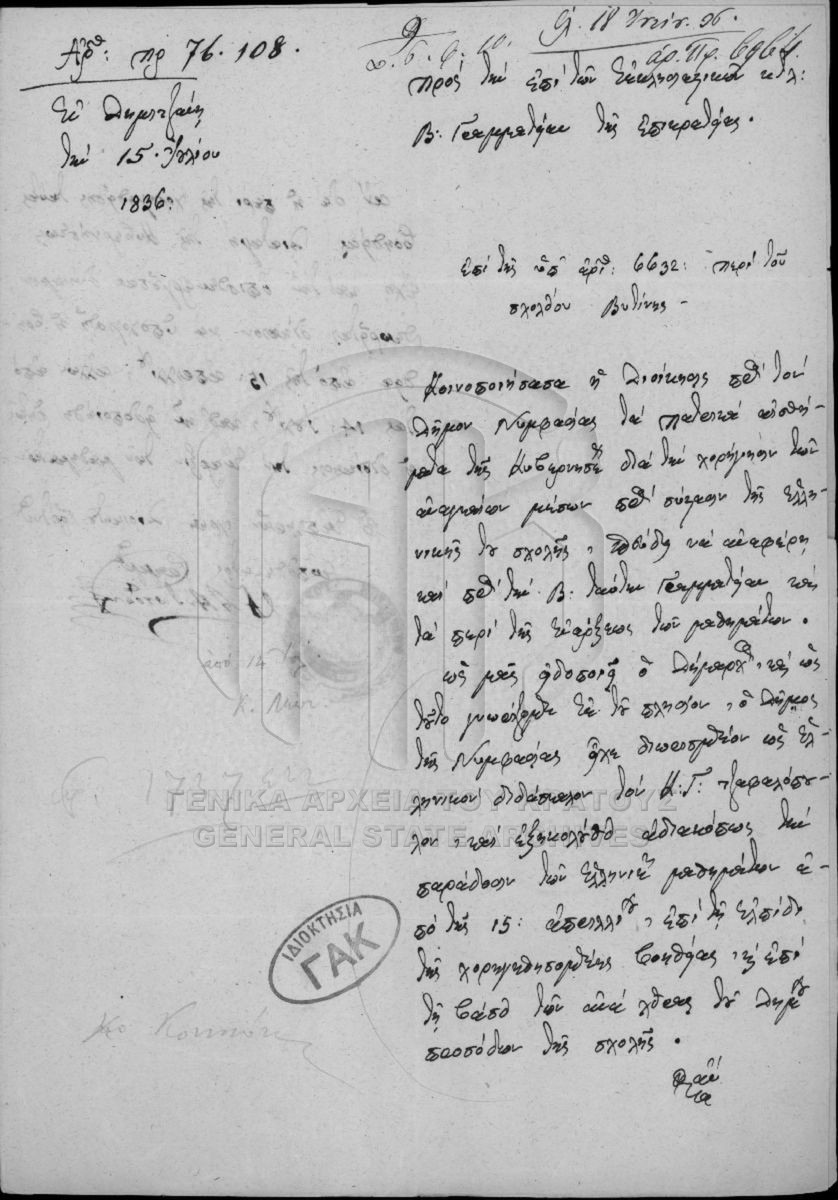 Ἀριθ: πρ 76.108.
Ἐν Δημητζάνῃ
τὴν 15. Ἰουλίου
1836.
Ἐλ. 18 Ἰουλ. 36.
ἀρ. Πρ.
Πρὸς τὴν ἐπὶ τῶν Ἐκκλησιαστικῶν κτλ:
Β: Γραμματείαν τῆς Ἐπικρατείας.
Ἐπὶ τῆς ὑπ' ἀριθ: 6632: περὶ τοῦ
σχολείου Βυτίνης -
Κοινοποιήσασα ἡ Διοίκησις πρὸς τὸν
Δῆμον Νυμφασίας τὰ πατρικὰ αἰσθή-
ματα τῆς Κυβερνήσεως διὰ τὴν χορήγησιν τῶν
ἀναγκαίων μέσων πρὸς σύστασιν τῆς Ἑλλη-
νικῆς του σχολῆς, σπεύδει νὰ ἀναφέρῃ
καὶ πρὸς τὴν Β: ταύτην Γραμματείαν καὶ
τὰ περὶ τῆς ἐνάρξεως τῶν μαθημάτων.
ὡς μᾶς εἰδοποιεῖ ὁ Δήμαρχος, καὶ ὡς
τοῦτο γνωρίζομεν ἐκ τοῦ πλησίον, ὁ Δῆμος
τῆς Νυμφασίας εἶχε διωρισμένον ὡς Ἑλ-
ληνικὸν διδάσκαλον τὸν Κ: Γ: Τζαφαλόπου-
λον, καὶ ἐξηκολούθει ἀδιακόπως τὴν
παράδοσιν τῶν Ἑλληνικῶν μαθημάτων ἀ-
πὸ τῆς 15: ἀπριλλίου, ἐπὶ τῇ ἐλπίδι
τῆς χορηγηθησομένης βοηθείας, καὶ ἐπὶ
τῇ βάσει τῶν ἀνὰ χεῖρας τοῦ Δήμου
προσόδων τῆς σχολῆς.
ἀπὸ 14
ΓΕΝΙΚΑ ΑΡΧΕΙΑ ΤΟΥ ΚΡΑΤΟΥΣ
GENERAL STATE ARCHIVES
ΙΔΙΟΚΤΗΣΙΑ
ΓΑΚ